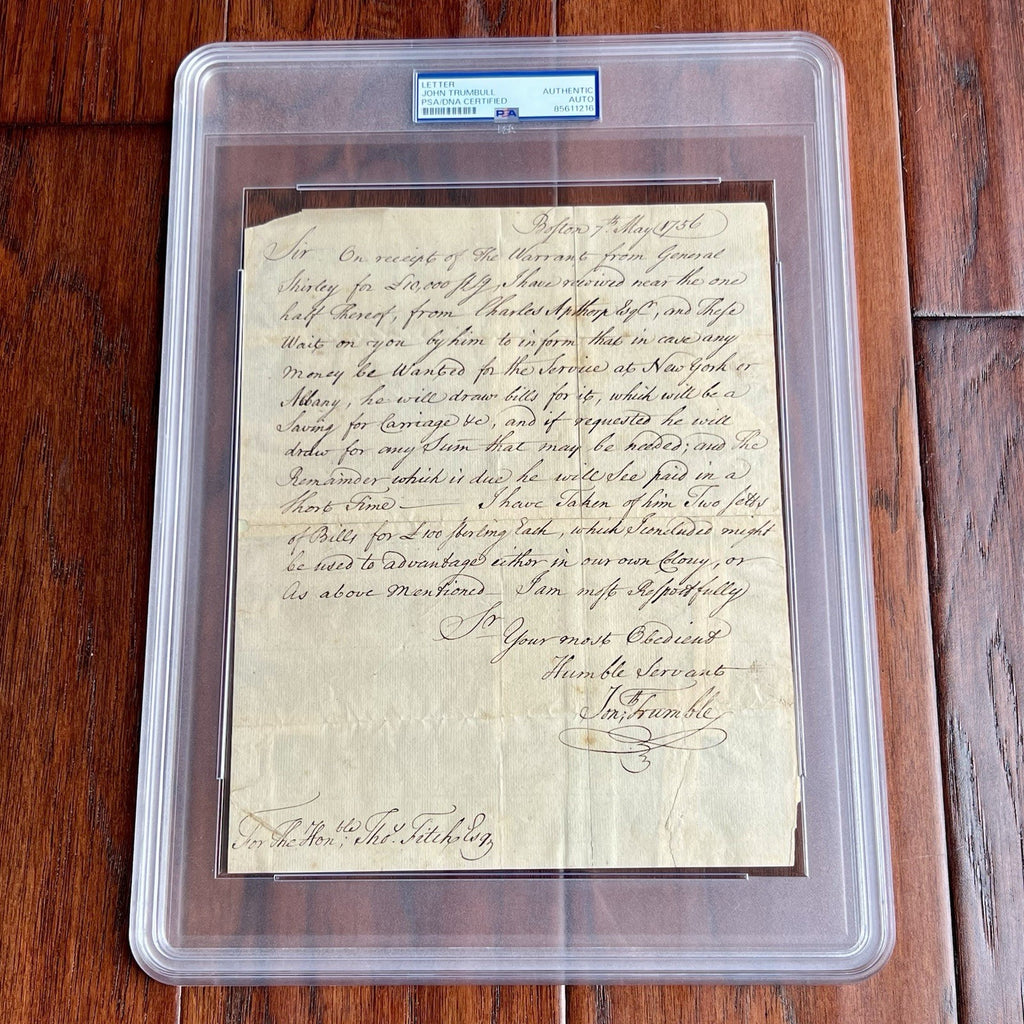 LETTER
JOHN TRUMBULL
PSA/DNA CERTIFIED
AUTHENTIC
AUTO
85611216
PSA
Boston 7th May 1756
Sir On receipt of The Warrant from General
Shirley for £10,000 Stg, I have received near the one
half Thereof, from Charles Apthorp Esqr, and These
Wait on you by him to inform that in case any
money be Wanted for the Service at New York or
Albany, he will draw bills for it, which will be a
Saving for Carriage &c, and if requested he will
draw for any Sum that may be needed; and The
Remainder which is due he will See paid in a
Short Time — I have Taken of him Two Setts
of Bills for £100 Sterling Each, which I concluded might
be used to advantage either in our own Colony, or
As above mentioned I am most Respectfully
Sr
Your most Obedient
Humble Servant
Jonth; Trumble
For The Honble; Thos. Fitch Esq